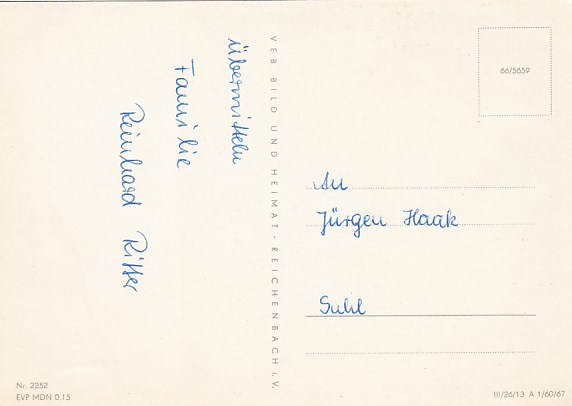 übermitteln
Familie
Reinhard Ritter
VEB BILD UND HEIMAT · REICHENBACH I.V.
66/5659
An
Jürgen Haak
Suhl
Nr. 2252
EVP MDN 0,15
III/26/13 A 1/60/67